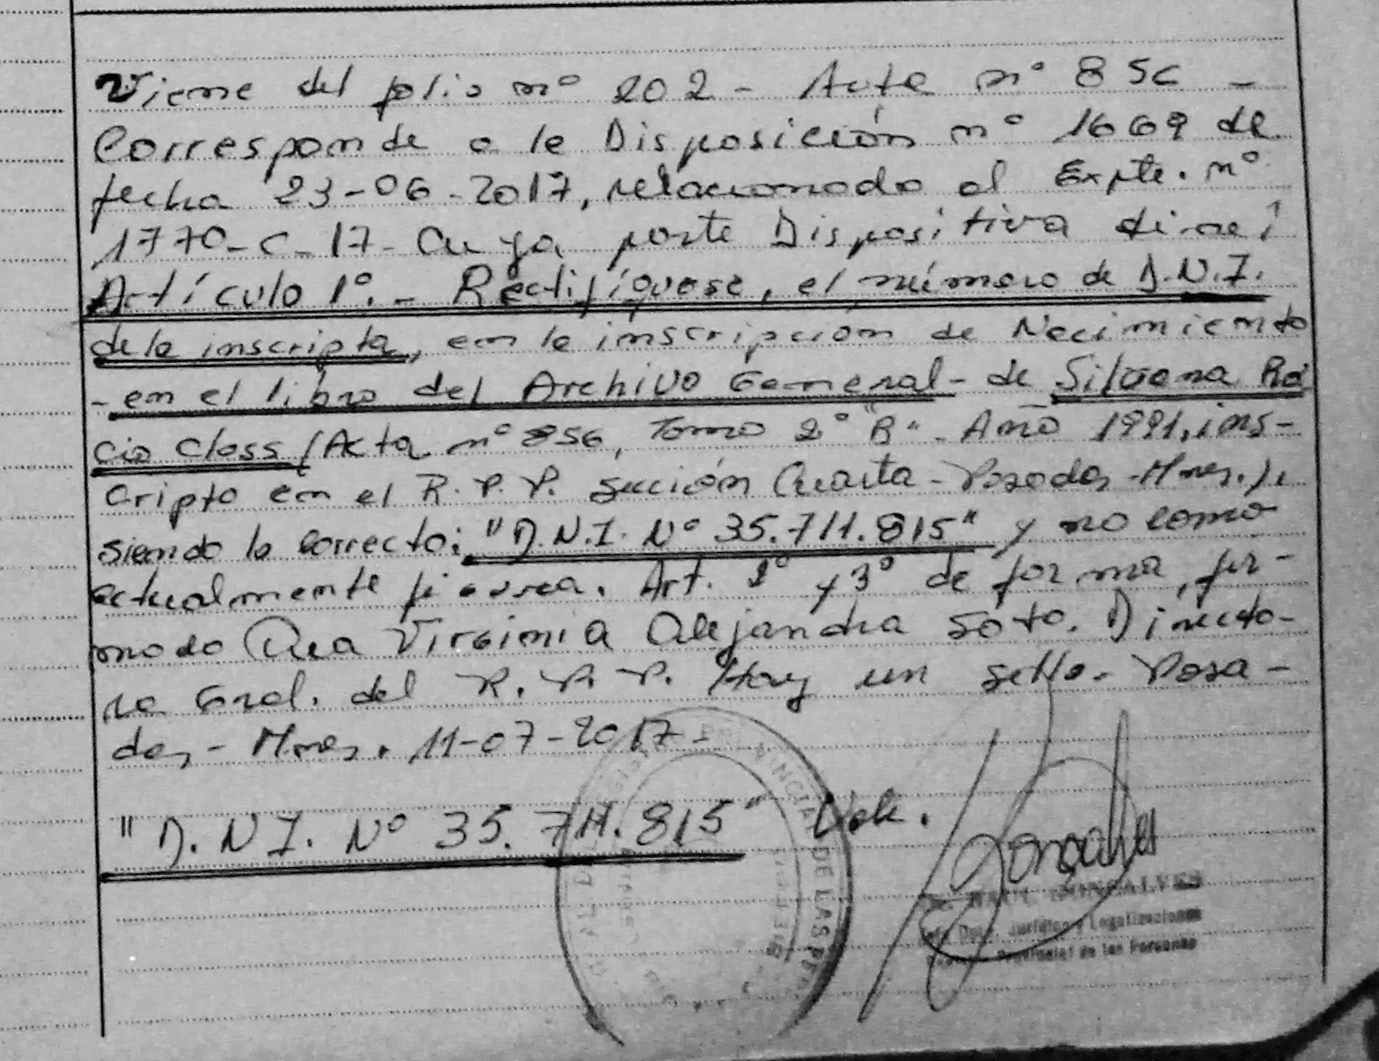 Viene del folio nº 202 - Acta nº 856 -
Corresponde a la Disposición nº 1669 de
fecha 23-06-2017, relacionado al Expte. nº
1770-C-17- Cuya parte Dispositiva dice:
Artículo 1º.- Rectifíquese, el número de D.N.I.
de la inscripta, en la inscripción de Nacimiento
- en el libro del Archivo General - de Silvana Ro
cio Closs (Acta nº 856, Tomo 2º "B". Año 1991, ins-
cripto en el R.P.P. sección Cuarta - Posadas - Mnes.),
siendo lo correcto: "D.N.I. Nº 35.711.815" y no como
actualmente figura. Art. 2º y 3º de forma, fir-
mado Dra Virginia Alejandra Soto. Directo-
ra Gral. del R.P.P. Hay un sello. Posa-
das - Mnes. 11-07-2017-
"D.N.I. Nº 35.711.815" Vale.
GONCALVES
Jurídico y Legalizaciones
Provincial de las Personas
PROVINCIAL DE LAS PERS